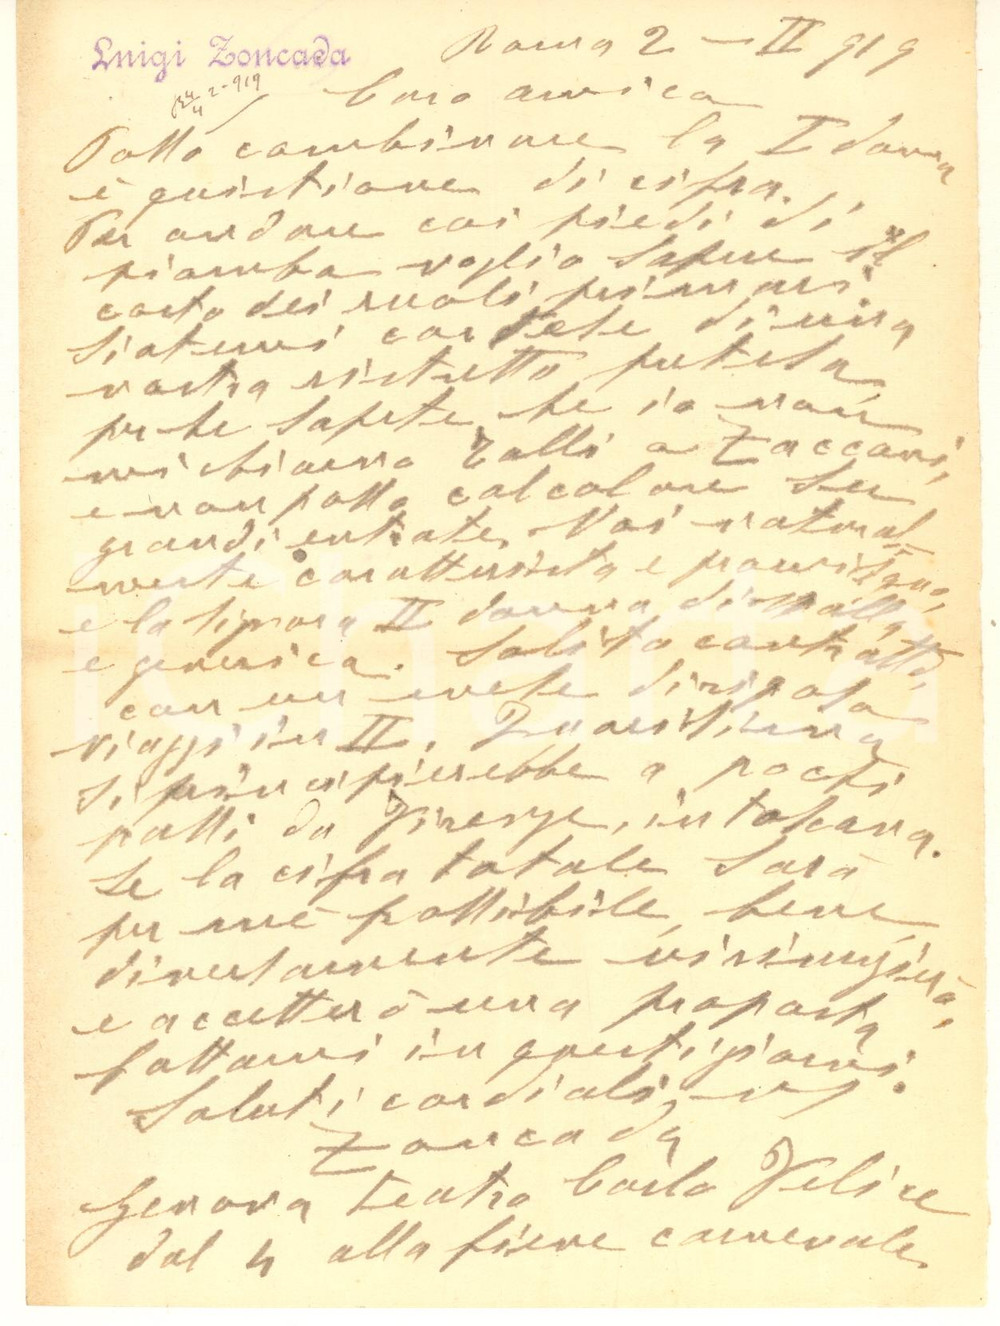 Luigi Zoncada
Roma 2 - II 919
2-919
Caro amico
Posso combinare la I donna
è quistione di cifra.
Per andare coi piedi di
piombo voglio sapere il
costo dei ruoli primari.
Siatemi cortese di una
vostra ristretta pretesa
perche sapete che io non
mi chiamo Talli o Zacconi,
e non posso calcolare su
grandi entrate. Voi natural-
mente caratterista e promiscuo,
e la signora II donna
e generica. Solito contratto,
con un mese di riposo
viaggi in II. Quaresima
si principierebbe a pochi
passi da Firenze, in toscana.
Se la cifra totale sarà
per me possibile, bene
diversamente vi ringrazierò,
e accetterò una proposta
fattami in questi giorni.
Saluti cordiali, vs
Zoncada
Genova teatro Carlo Felice
dal 4 alla fine carnevale